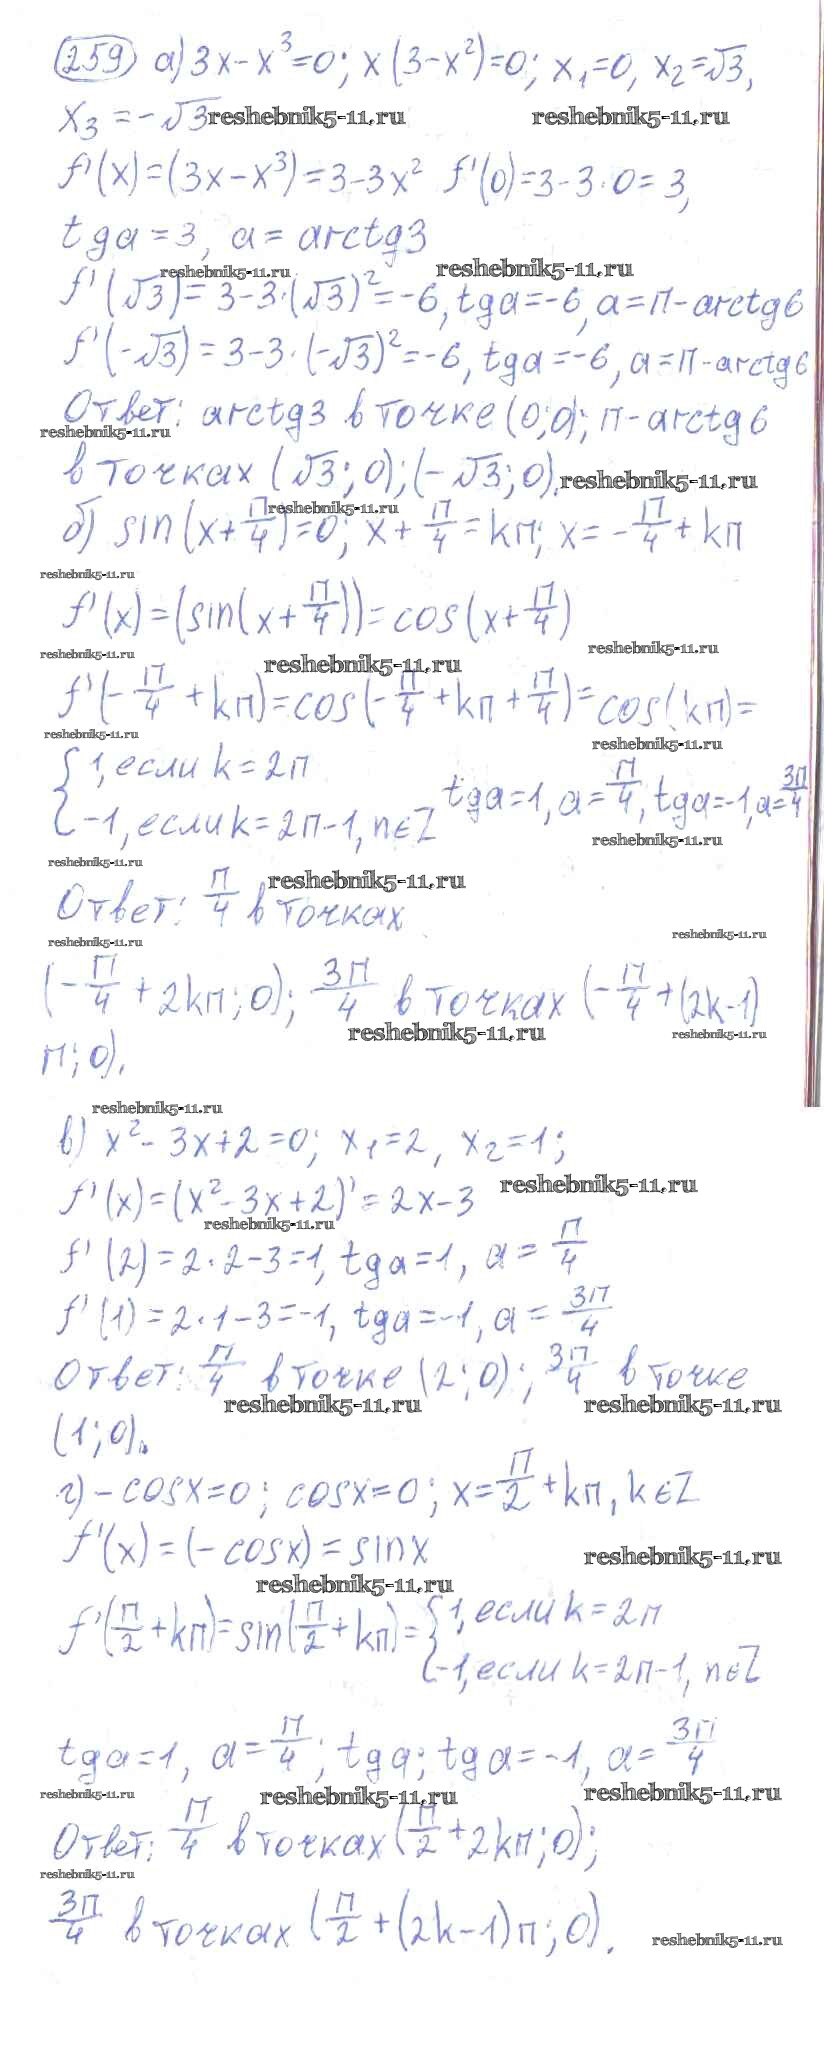 259 а) 3x-x³=0; x(3-x²)=0; x₁=0, x₂=√3,
x₃=-√3 reshebnik5-11.ru reshebnik5-11.ru
f'(x)=(3x-x³)=3-3x² f'(0)=3-3·0=3,
tga=3, a=arctg3
reshebnik5-11.ru reshebnik5-11.ru
f'(√3)=3-3·(√3)²=-6, tga=-6, a=π-arctg6
f'(-√3)=3-3·(-√3)²=-6, tga=-6, a=π-arctg6
Ответ: arctg3 в точке (0;0); π-arctg6
reshebnik5-11.ru
в точках (√3;0);(-√3;0). reshebnik5-11.ru
reshebnik5-11.ru
б) sin(x+π/4)=0; x+π/4=kπ; x=-π/4+kπ
reshebnik5-11.ru
f'(x)=(sin(x+π/4))=cos(x+π/4)
reshebnik5-11.ru reshebnik5-11.ru reshebnik5-11.ru
f'(-π/4+kπ)=cos(-π/4+kπ+π/4)=cos(kπ)=
reshebnik5-11.ru reshebnik5-11.ru
{1, если k=2п
-1, если k=2п-1, n∈Z tga=1, a=π/4, tga=-1, a=3π/4
reshebnik5-11.ru reshebnik5-11.ru
Ответ: π/4 в точках reshebnik5-11.ru
reshebnik5-11.ru reshebnik5-11.ru
(-π/4+2kπ;0); 3π/4 в точках (-π/4+(2k-1)
reshebnik5-11.ru reshebnik5-11.ru
π;0).
reshebnik5-11.ru
в) x²-3x+2=0; x₁=2, x₂=1;
f'(x)=(x²-3x+2)'=2x-3 reshebnik5-11.ru
reshebnik5-11.ru
f'(2)=2·2-3=1, tga=1, a=π/4
f'(1)=2·1-3=-1, tga=-1, a=3π/4
Ответ: π/4 в точке (2;0); 3π/4 в точке
reshebnik5-11.ru reshebnik5-11.ru
(1;0).
г) -cosx=0; cosx=0; x=π/2+kπ, k∈Z
f'(x)=(-cosx)=sinx reshebnik5-11.ru
reshebnik5-11.ru
f'(π/2+kπ)=sin(π/2+kπ)={1, если k=2п
-1, если k=2п-1, n∈Z
tga=1, a=π/4; tga; tga=-1, a=3π/4
reshebnik5-11.ru reshebnik5-11.ru reshebnik5-11.ru
Ответ: π/4 в точках (π/2+2kπ;0);
reshebnik5-11.ru
3π/4 в точках (π/2+(2k-1)π;0).
reshebnik5-11.ru